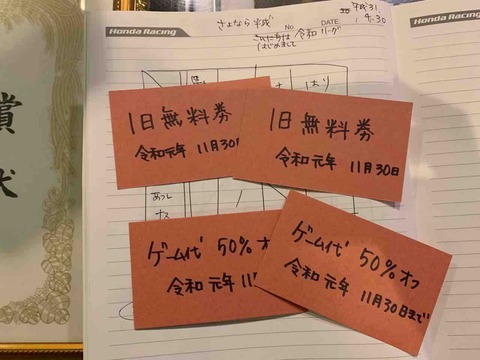 Honda Racing
Honda Racing
平成31.
さよなら平成
NO.
DATE
4.30
令和リーグ
はじめまして
はり
1日無料券
令和元年 11月30
1日無料券
令和元年 11月30日
あつし
ナス
ゲーム代 50%オフ
令和元年 11
ゲーム代 50%オフ
令和元年 11月30日まで
賞
状